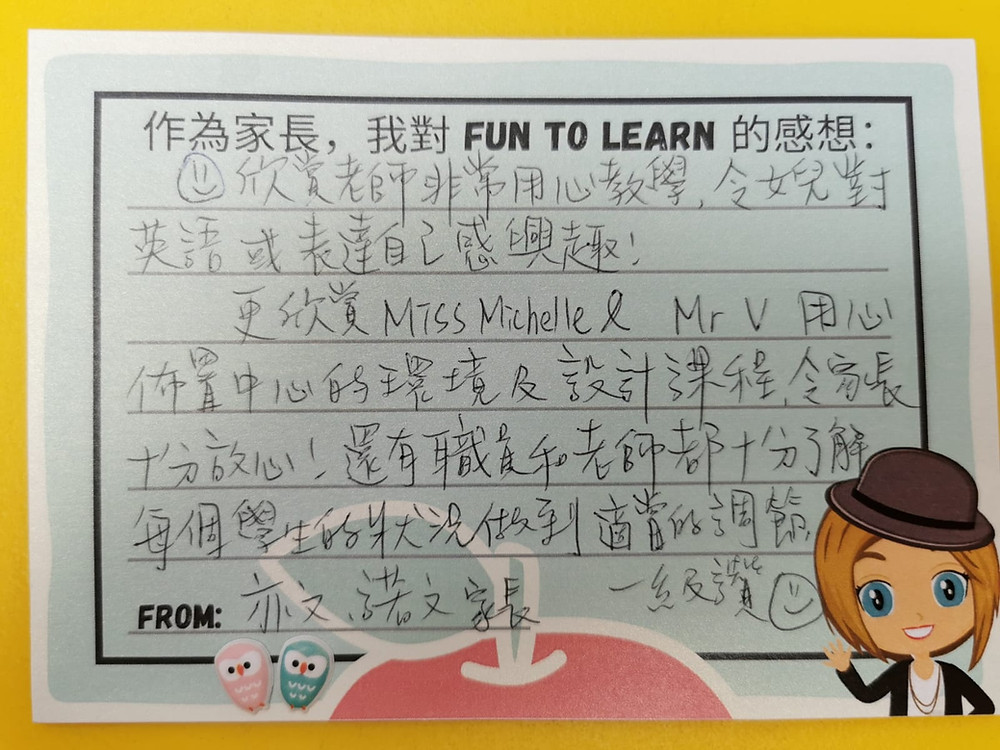 作為家長，我對 FUN TO LEARN 的感想：
欣賞老師非常用心教學，令女兒對
英語或表達自己感興趣！
更欣賞 Miss Michelle & Mr V 用心
佈置中心的環境及設計課程，令家長
十分放心！還有職員和老師都十分了解
每個學生的狀況做到適當的調節
一級讚
FROM: 亦文、諾文家長